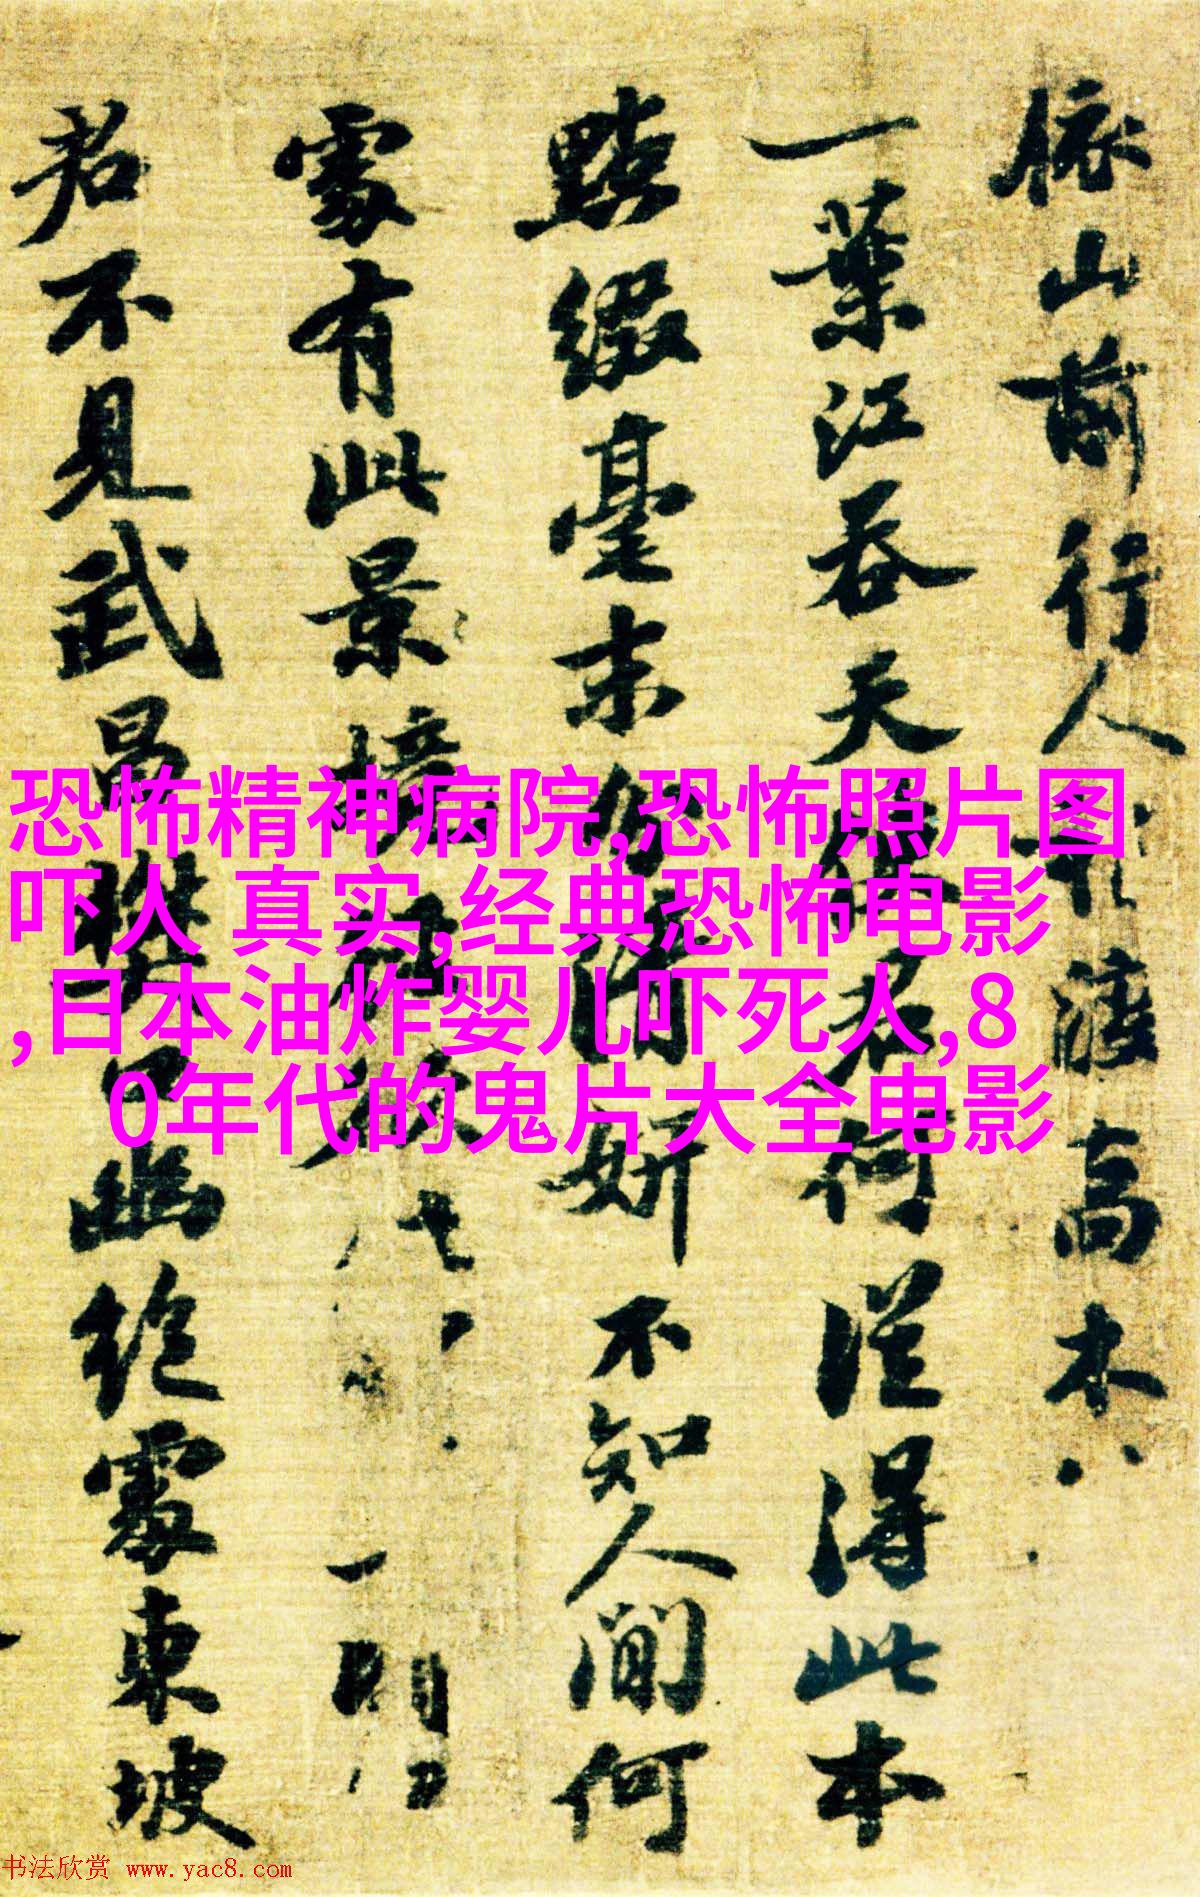 依山前行人渡高木
一葉江吞天使君何從得此本
點綴毫末分清妍不知人間何
處有此景
君不見武昌樊口幽絕處東坡
恐怖精神病院,恐怖照片图
吓人 真实,经典恐怖电影
,日本油炸婴儿吓死人,8
0年代的鬼片大全电影
书法欣赏 www.yac8.com